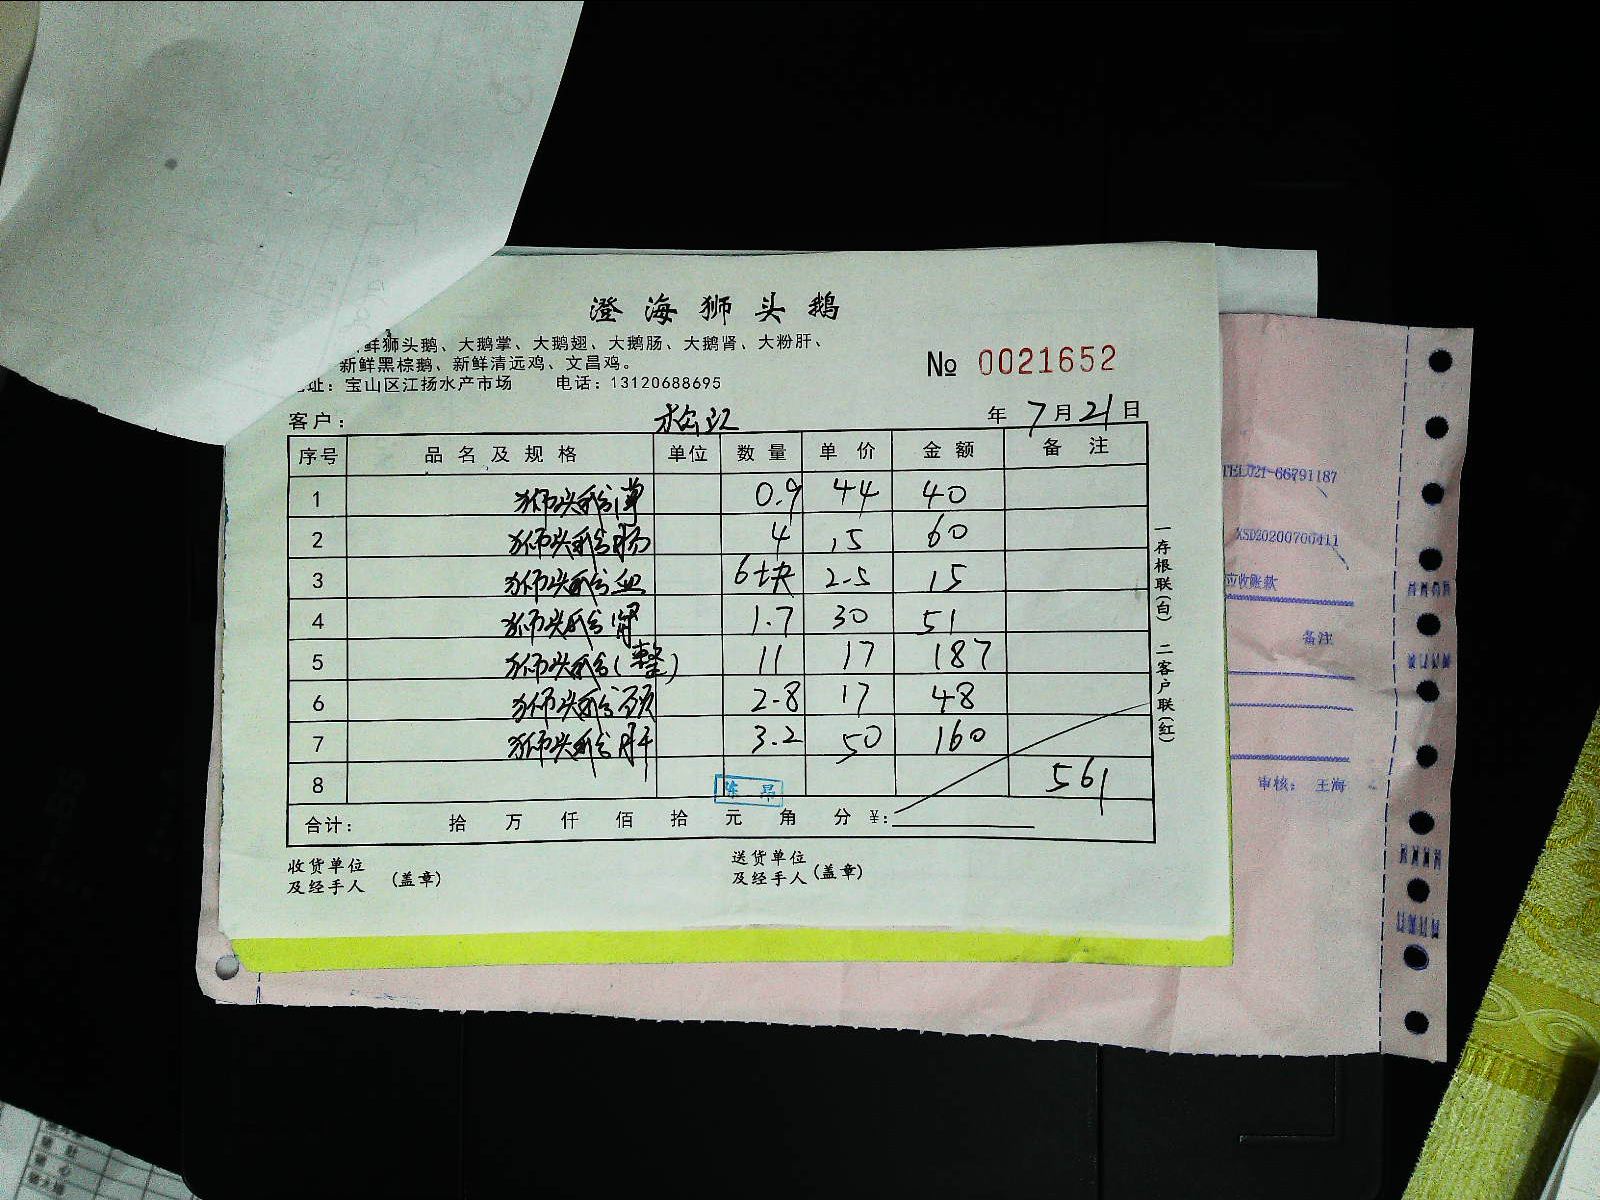 澄海狮头鹅
鲜狮头鹅、大鹅掌、大鹅翅、大鹅肠、大鹅肾、大粉肝、
新鲜黑棕鹅、新鲜清远鸡、文昌鸡。
址：宝山区江扬水产市场 电话：13120688695
№ 0021652
客户： 松江 年 7月21日
序号 品名及规格 单位 数量 单价 金额 备注
1 狮头鹅 0.9 44 40
2 狮头鹅肠 4 15 60
3 狮头鹅血 6块 2.5 15
4 狮头鹅肾 1.7 30 51
5 狮头鹅(整) 11 17 187
6 狮头鹅颈 2.8 17 48
7 狮头鹅肝 3.2 50 160
8 561
陈昂
合计： 拾 万 仟 佰 拾 元 角 分 ¥：
收货单位
及经手人 (盖章)
送货单位
及经手人 (盖章)
一存根联(白) 二客户联(红)
TEL021-66791187
XSD20200700411
应收账款
备注
审核： 王海